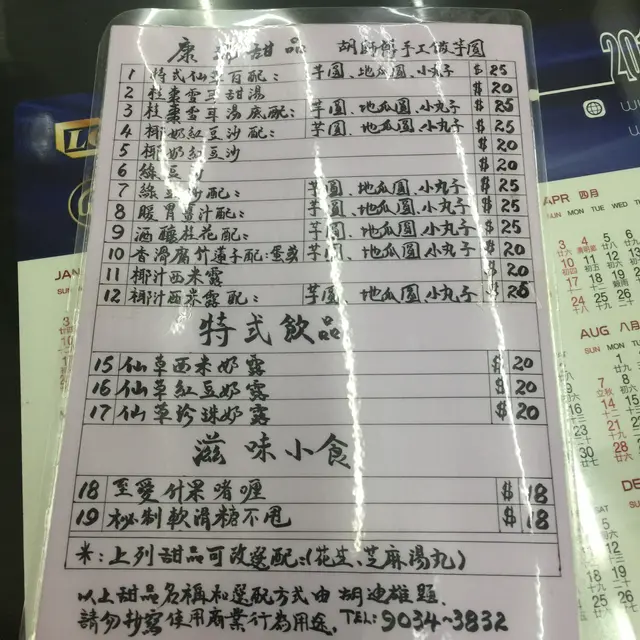 康 甜品 胡師傅手工做芋圓
1 特式仙草百配: 芋圓、地瓜圓、小丸子 $ 25
2 桂棗雪耳甜湯 $ 20
3 桂棗雪耳湯底配: 芋圓、地瓜圓、小丸子 $ 25
4 椰奶紅豆沙配: 芋圓、地瓜圓、小丸子 $ 25
5 椰奶紅豆沙 $ 20
6 綠豆沙 $ 20
7 綠豆沙配: 芋圓、地瓜圓、小丸子 $ 25
8 暖胃薑汁配: 芋圓、地瓜圓、小丸子 $ 25
9 酒釀桂花配: 芋圓、地瓜圓、小丸子 $ 25
10 香滑腐竹蓮子配:蛋 芋圓、地瓜圓、小丸子 $ 20
11 椰汁西米露 $ 20
12 椰汁西米露配: 芋圓、地瓜圓、小丸子 $ 25
特式飲品
15 仙草西米奶露 $ 20
16 仙草紅豆奶露 $ 20
17 仙草珍珠奶露 $ 20
滋味小食
18 至愛什果啫喱 $ 18
19 秘制軟滑糖不甩 $ 18
*:上列甜品可改選配:(花生、芝麻湯丸)
以上甜品名稱和選配方式由 胡迪雄題.
請勿抄寫使用商業行為用途. TEL: 9034-3832
APR 四月
SUN MON TUE WED
AUG 八月
SUN MON TUE
JAN